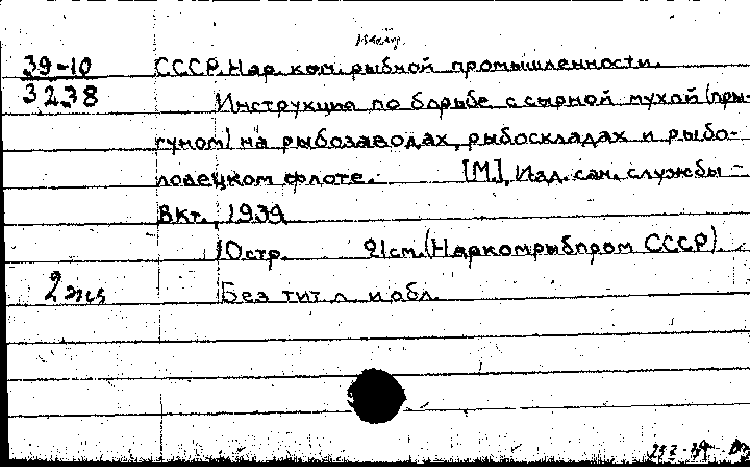 39-10 СССР. Нар. ком. рыбной промышленности.
3238 Инструкция по борьбе с сырной мухой (пры-
гуном) на рыбозаводах, рыбоскладах и рыбо-
ловецком флоте. [М.], Изд. сан. службы –
ВКт., 1939
10стр. 21см. (Наркомрыбпром СССР).
2 экз Без тит. л. и обл.